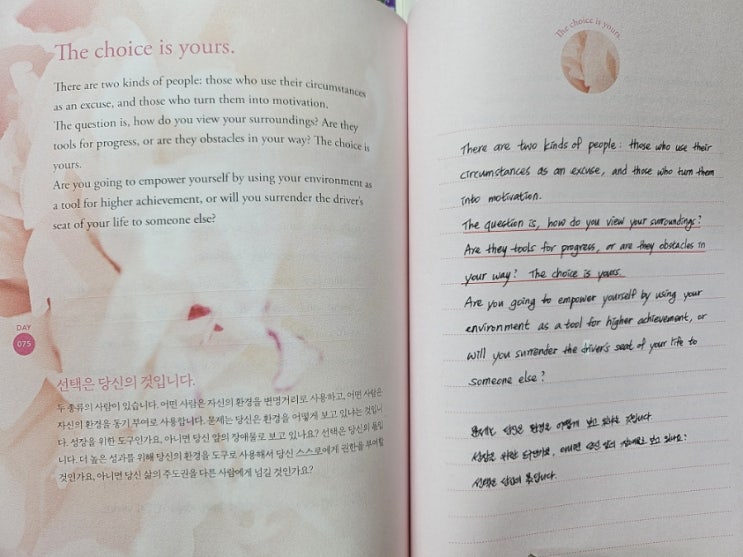 The choice is yours.
There are two kinds of people: those who use their circumstances
as an excuse, and those who turn them into motivation.
The question is, how do you view your surroundings? Are they
tools for progress, or are they obstacles in your way? The choice is
yours.
Are you going to empower yourself by using your environment as
a tool for higher achievement, or will you surrender the driver's
seat of your life to someone else?
DAY
075
선택은 당신의 것입니다.
두 종류의 사람이 있습니다. 어떤 사람은 자신의 환경을 변명거리로 사용하고, 어떤 사람은
자신의 환경을 동기 부여로 사용합니다. 문제는 당신은 환경을 어떻게 보고 있냐는 것입니
다. 성장을 위한 도구인가요, 아니면 당신 앞의 장애물로 보고 있나요? 선택은 당신의 몫입
니다. 더 높은 성과를 위해 당신의 환경을 도구로 사용해서 당신 스스로에게 권한을 부여할
것인가요, 아니면 당신 삶의 주도권을 다른 사람에게 넘길 것인가요?
The choice is yours.
There are two kinds of people: those who use their
circumstances as an excuse, and those who turn them
into motivation.
The question is, how do you view your surroundings?
Are they tools for progress, or are they obstacles in
your way? The choice is yours.
Are you going to empower yourself by using your
environment as a tool for higher achievement, or
will you surrender the driver's seat of your life to
someone else?
문제는 당신은 환경을 어떻게 보고 있냐는 것입니다.
성장을 위한 도구인가요, 아니면 당신 앞의 장애물로 보고 있나요?
선택은 당신의 몫입니다.